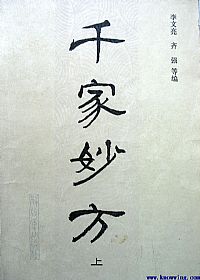 李文亮 齐强 等编
千家妙方
上
www.knowing.com